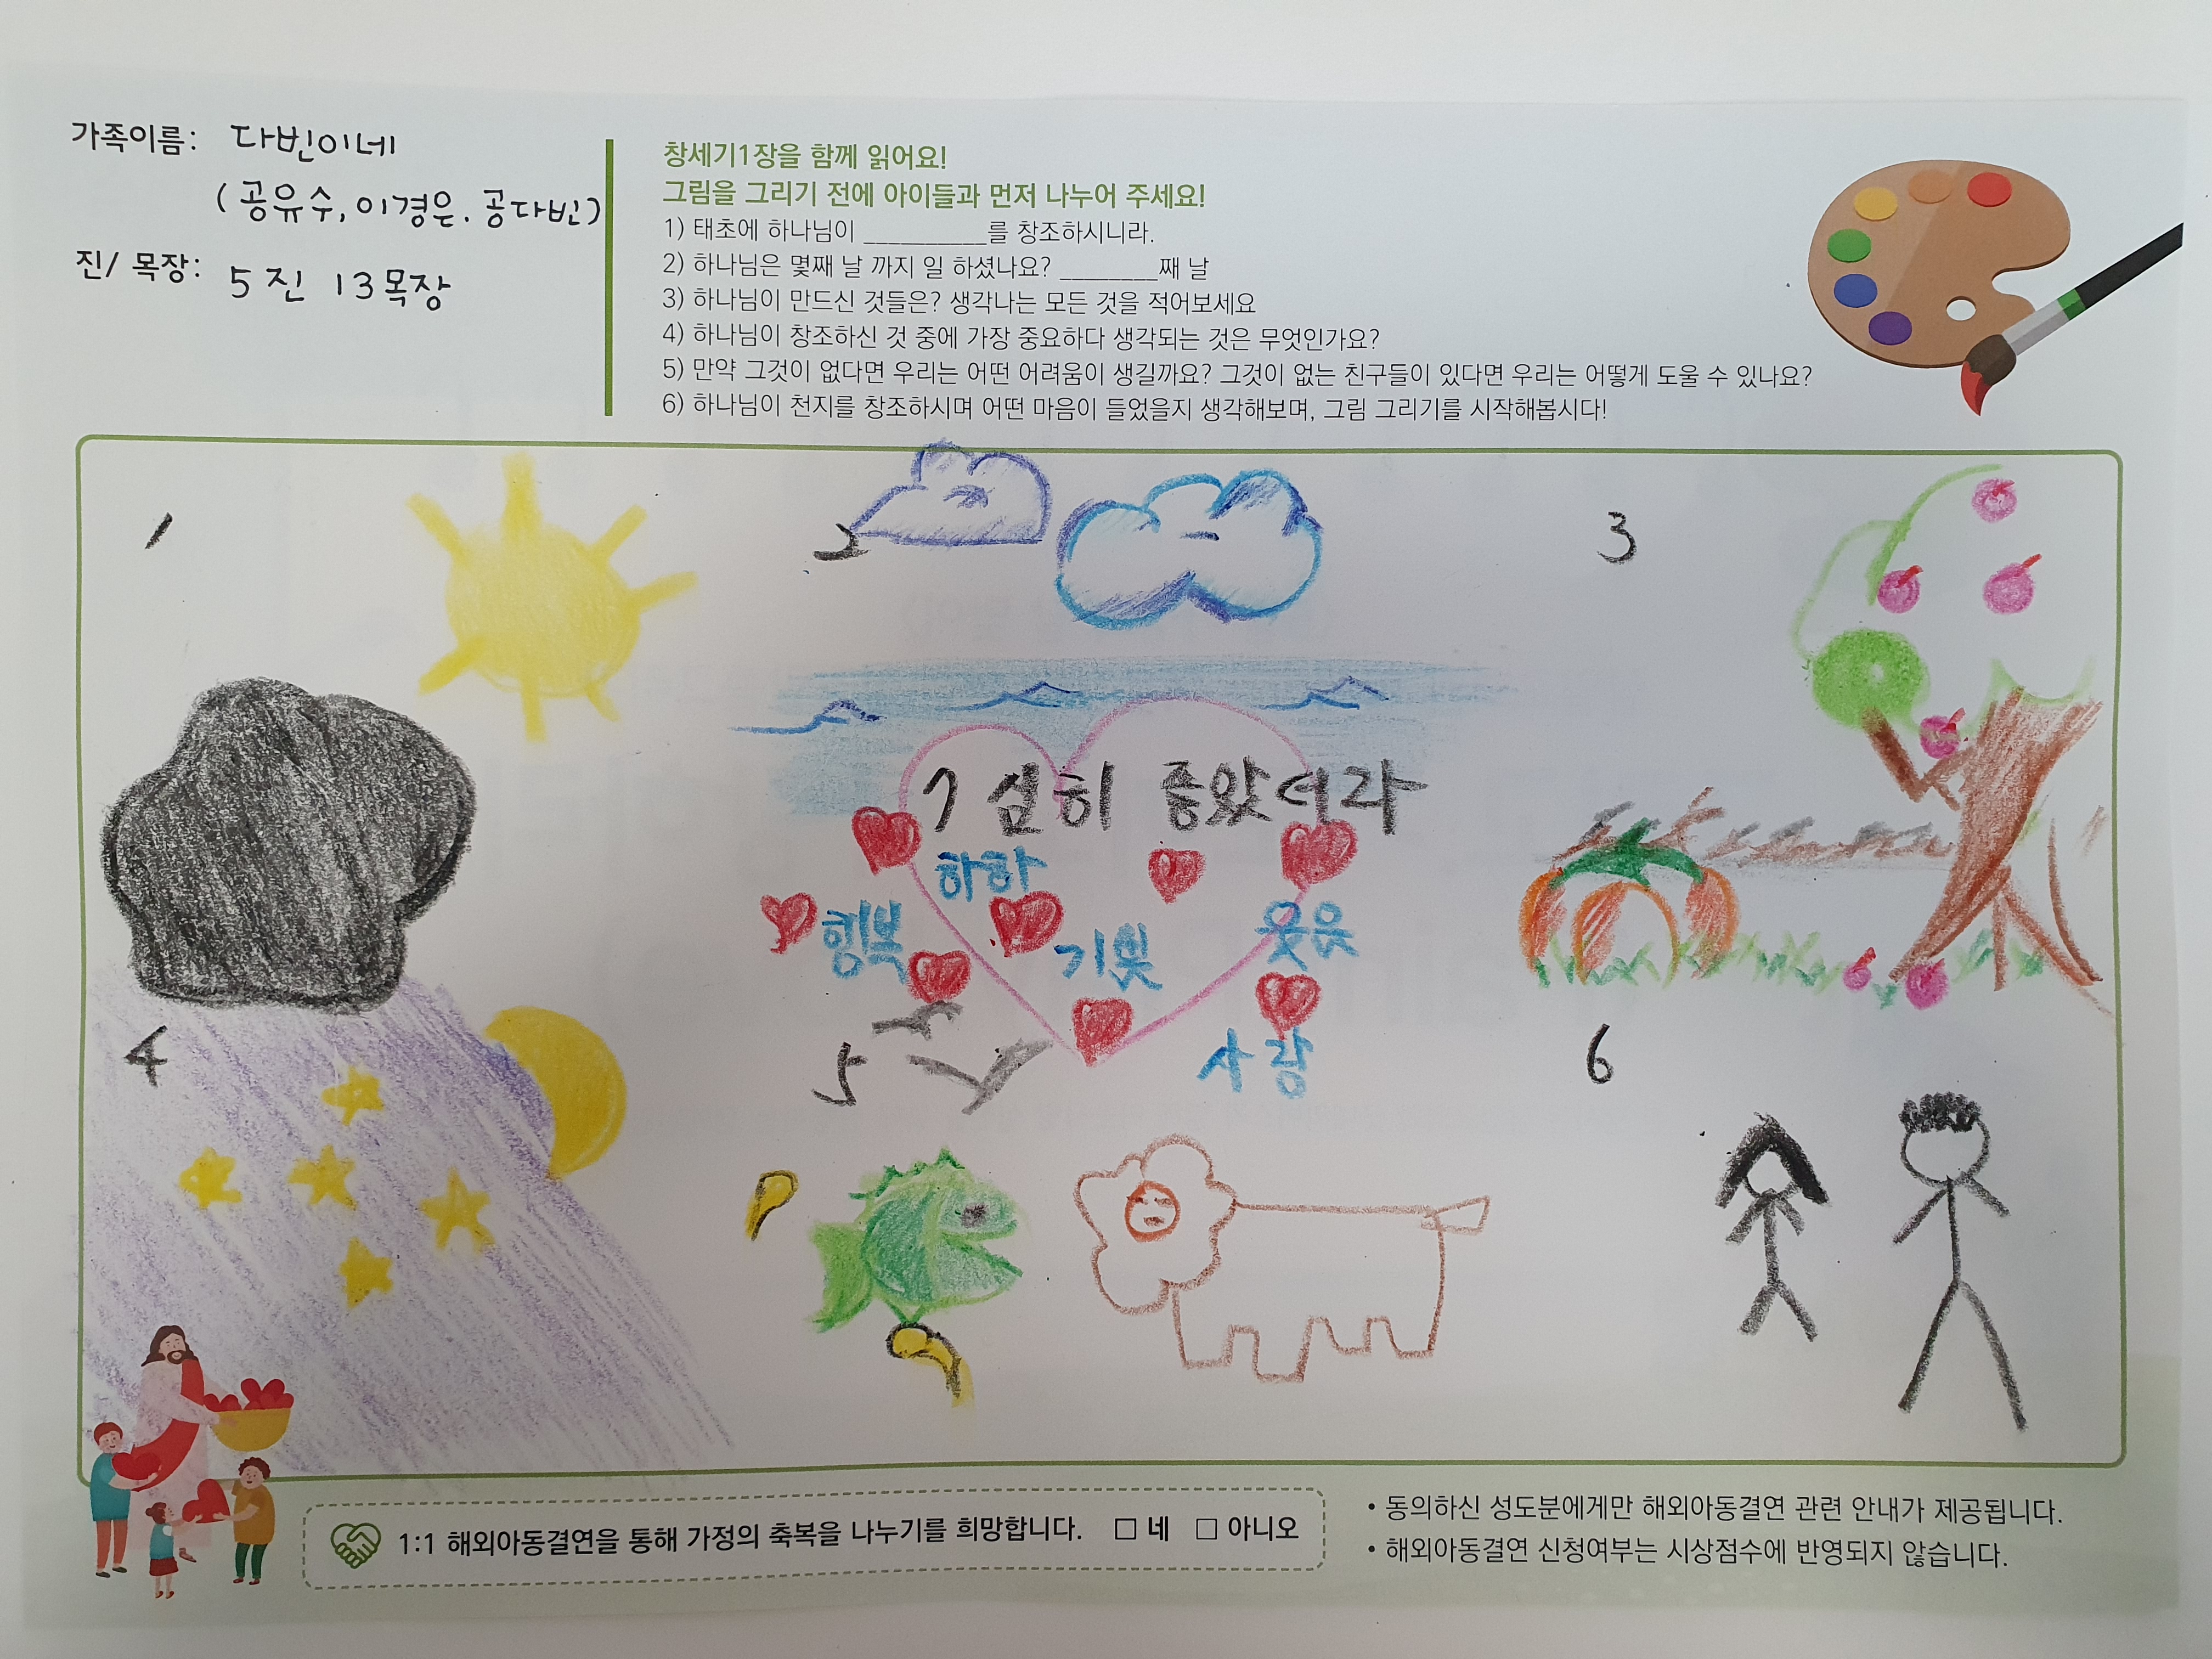 가족이름: 다빈이네
(공유수, 이경은, 공다빈)
진/ 목장: 5진 13목장
창세기1장을 함께 읽어요!
그림을 그리기 전에 아이들과 먼저 나누어 주세요!
1) 태초에 하나님이 __________를 창조하시니라.
2) 하나님은 몇째 날 까지 일 하셨나요? ________째 날
3) 하나님이 만드신 것들은? 생각나는 모든 것을 적어보세요
4) 하나님이 창조하신 것 중에 가장 중요하다 생각되는 것은 무엇인가요?
5) 만약 그것이 없다면 우리는 어떤 어려움이 생길까요? 그것이 없는 친구들이 있다면 우리는 어떻게 도울 수 있나요?
6) 하나님이 천지를 창조하시며 어떤 마음이 들었을지 생각해보며, 그림 그리기를 시작해봅시다!
1
2
3
7 심히 좋았더라
하하
행복
기쁨
웃음
사랑
4
5
6
1:1 해외아동결연을 통해 가정의 축복을 나누기를 희망합니다. □ 네 □ 아니오
• 동의하신 성도분에게만 해외아동결연 관련 안내가 제공됩니다.
• 해외아동결연 신청여부는 시상점수에 반영되지 않습니다.